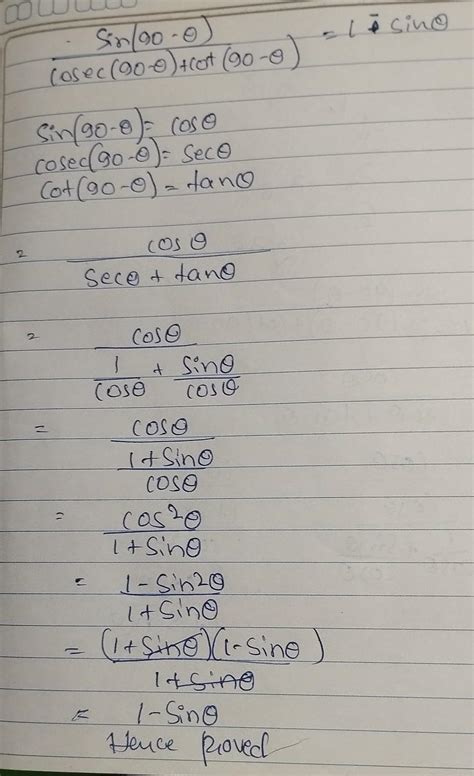 sin(90-θ) / cosec(90-θ)+cot(90-θ) = 1 - sinθ
sin(90-θ)= cosθ
cosec(90-θ)= secθ
cot(90-θ) = tanθ
= cosθ / secθ + tanθ
= cosθ / 1/cosθ + sinθ/cosθ
= cosθ / 1+sinθ/cosθ
= cos²θ / 1+sinθ
= 1-sin2θ / 1+sinθ
= (1+sinθ)(1-sinθ) / 1+sinθ
= 1-sinθ
Hence proved